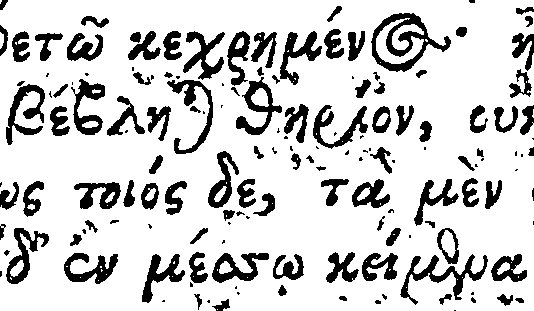 θέτῳ κεχρημένος. ἢ
βέβληται θηρίον, οὐκ
ως τοιόςδε, τὰ μὲν
δ' ἐν μέσῳ κείμενα